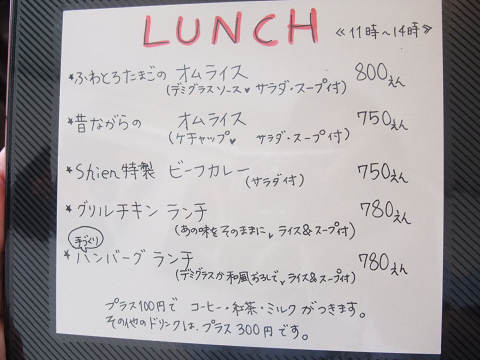 LUNCH 《11時〜14時》
*ふわとろたまごの オムライス 800えん
(デミグラスソース♥ サラダ・スープ付)
*昔ながらの オムライス 750えん
(ケチャップ♥ サラダ・スープ付)
*Shien特製 ビーフカレー 750えん
(サラダ付)
*グリルチキン ランチ 780えん
(あの味をそのままに♥ ライス&スープ付)
手づくり
*ハンバーグ ランチ 780えん
(デミグラスか和風おろしで♥ ライス&スープ付)
プラス100円で コーヒー・紅茶・ミルク がつきます。
その他のドリンクは、プラス 300円です。